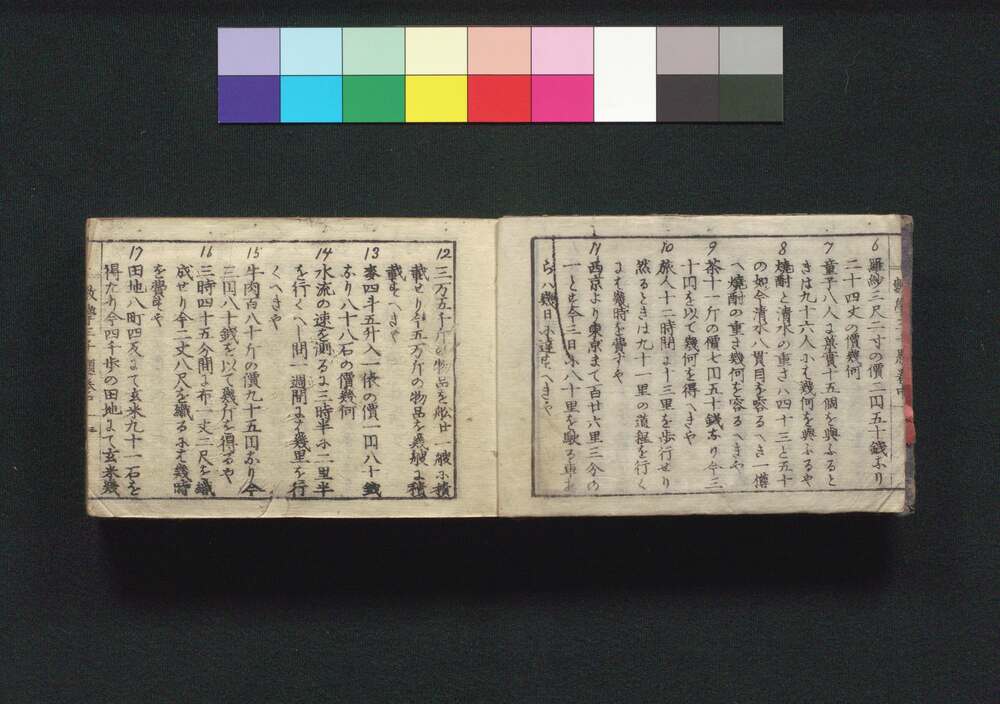 6 羅紗三尺二寸の價二円五十錢なり
二十四丈の價幾何
7 童子八人に菓實十五個を與ふると
きは九十六人には幾何を與ふるや
8 焼酎と清水の重さハ四十三と五十
の如今清水八貫目を容るへき一僔
へ焼酎の重さ幾何を容るへきや
9 茶十一斤の價七円五十錢なり今三
十円を以て幾何を得へきや
10 旅人十二時間に十三里を歩行せり
然るときは九十一里の道程を行く
にも幾時を費すや
11 西京より東京まて百廿六里三分の
一とも今三日に八十里を駛る車な
らハ幾日に達すへきや
12 三万五千斤の物品を舩廿一艘に積
載せり今五万斤の物品を幾艘に積
載すへきや
13 麥四斗五升入一俵の價一円八十錢
なり八十八石の價幾何
14 水流の速を測るに三時半に二里半
を行くへし問一週間にて幾里を行
くへきや
15 牛肉百八十斤の價九十五円なり今
三円八十錢を以て幾斤を得るや
16 三時四十五分間に布一丈二尺を織
成せり今二丈八尺を織るにも幾時
を費すや
17 田地八町四反にて玄米九十一石を
得たり今四千歩の田地にて玄米幾